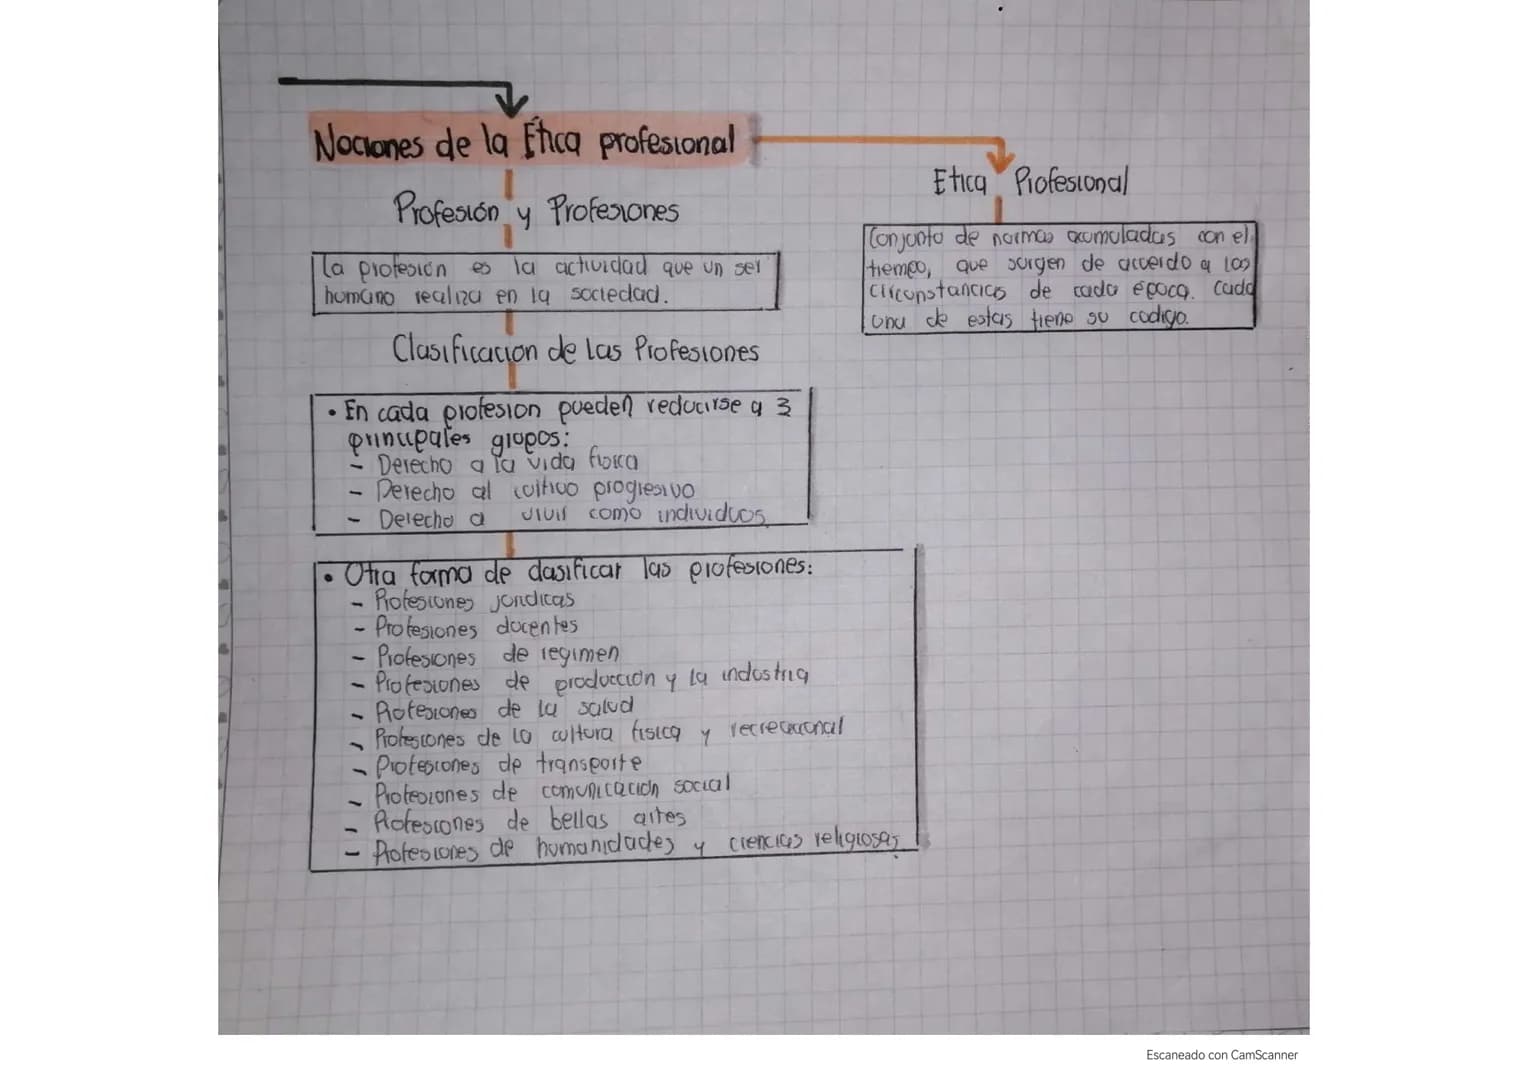 Nociones de la Ética profesional
Profesión y Profesiones
La profesión es la actividad que un ser
humano realiza en la sociedad.
Clasificacion de las Profesiones
• En cada profesion pueden reducirse a 3
principales grupos:
- Derecho a la vida fisica
- Derecho al cultivo progresivo
- Derecho a vivir como individuos
• Otra forma de clasificar las profesiones:
- Profesiones juridicas
- Profesiones docentes
- Profesiones de regimen
- Profesiones de producción y la industria
- Profesiones de la salud
- Profesiones de la cultura fisica y recreacional
- Profesiones de transporte
- Profesiones de comunicación social
- Profesiones de bellas artes
- Profesiones de humanidades y ciencias religiosas
Etica Profesional
Conjunto de normas acumuladas con el
tiempo, que surgen de acuerdo a las
circunstancias de cada época. Cada
una de estas tiene su codigo.
Escaneado con CamScanner